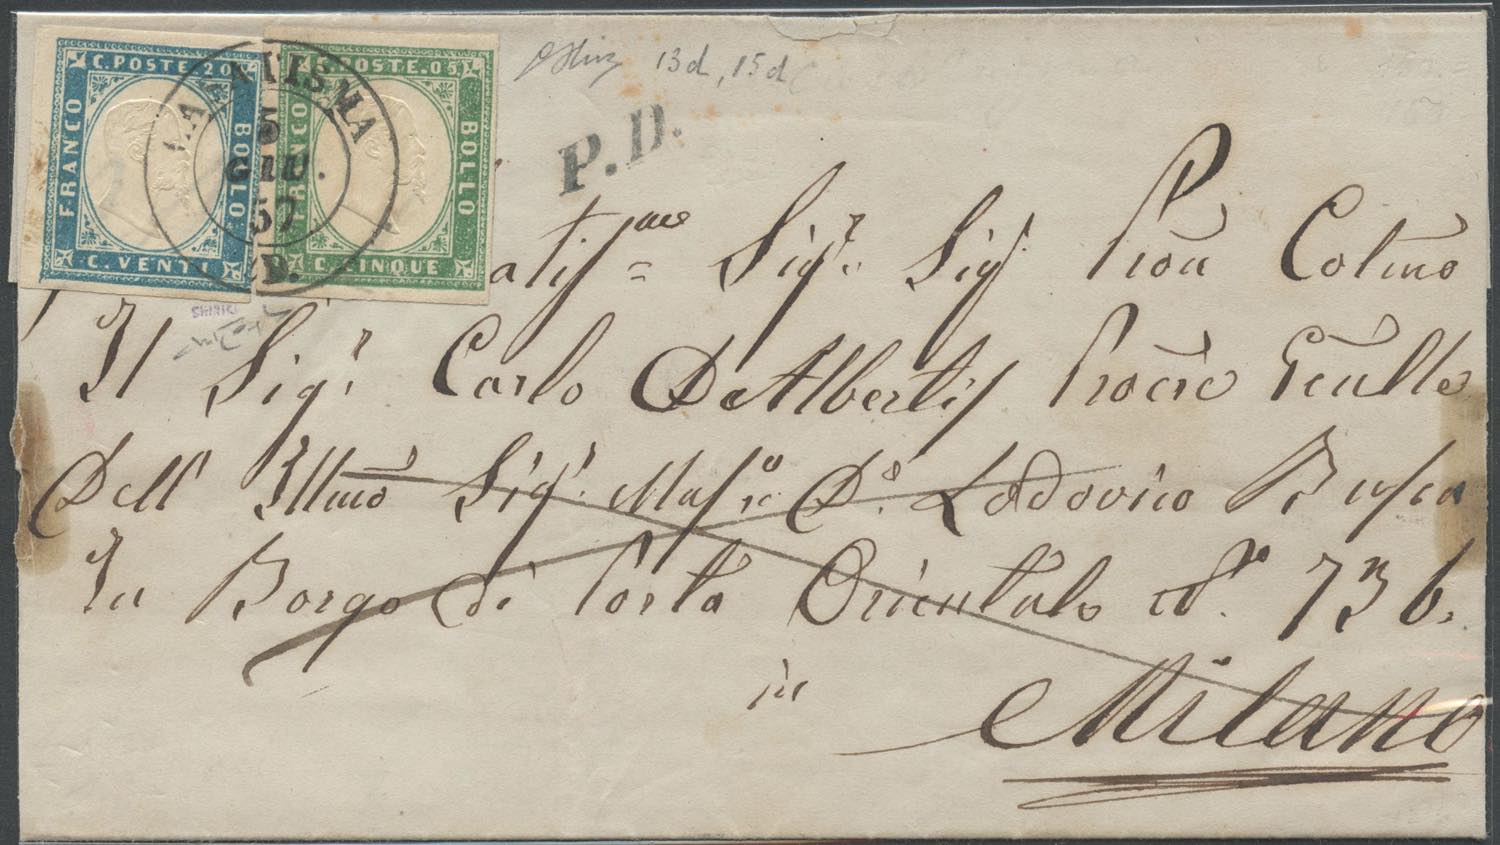 C. POSTE. 20
FRANCO
BOLLO
C. VENTI
C. 5 POSTE. 05
FRANCO
BOLLO
C. CINQUE
5
GIU.
57
13d, 15d
P.D.
Sig.r Sig.r Pron Colmo
Il Sig.r Carlo DeAlbertis
Dell' Illmo Sig.r D.n Lodovico Busca
In Borgo di Porta Orientale N.o 736.
in
Milano